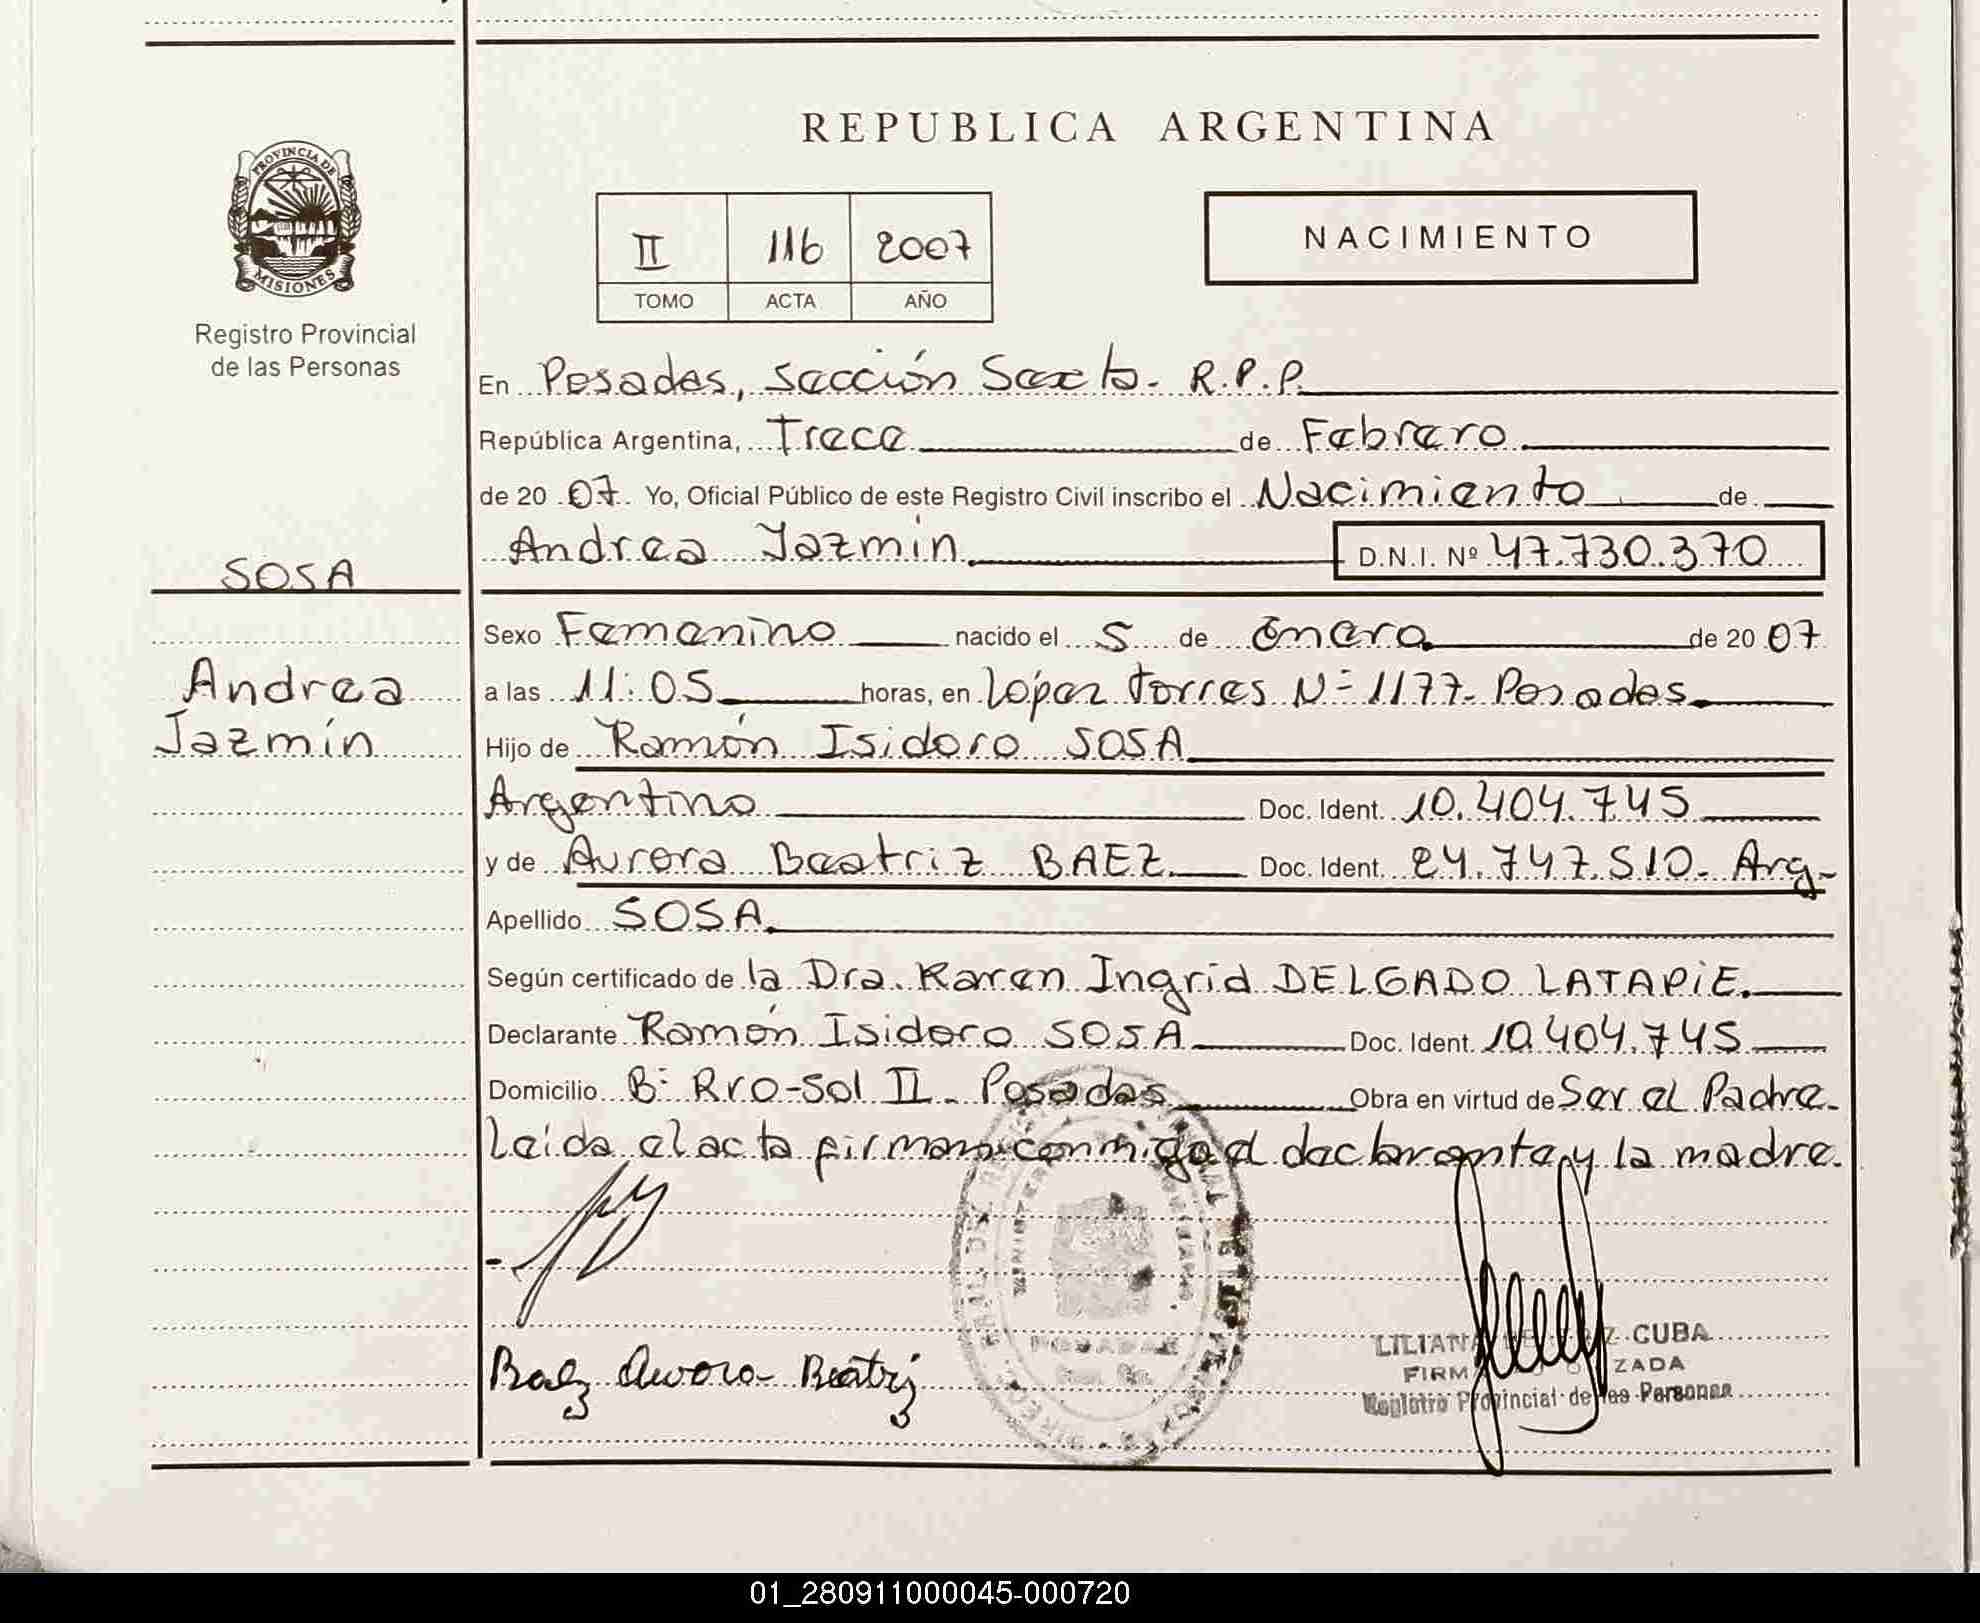 REPUBLICA ARGENTINA
PROVINCIA DE
MISIONES
Registro Provincial
de las Personas
II 116 2007
TOMO ACTA AÑO
NACIMIENTO
En Posadas, sección Sexta- R.P.P.
República Argentina, Trece de Febrero
de 20 07 Yo, Oficial Público de este Registro Civil inscribo el Nacimiento de
Andrea Jazmín D.N.I. Nº 47.730.370
SOSA
Andrea
Jazmín
Sexo Femenino nacido el 5 de Enero de 20 07
a las 11:05 horas, en López Torres Nº 1177- Posadas
Hijo de Ramón Isidoro SOSA
Argentino Doc. Ident. 10.404.745
y de Aurora Beatriz BAEZ Doc. Ident. 24.747.510- Arg-
Apellido SOSA
Según certificado de la Dra. Karen Ingrid DELGADO LATAPIE.
Declarante Ramón Isidoro SOSA Doc. Ident. 10.404.745
Domicilio Bº Rro-Sol II- Posadas Obra en virtud de Ser el Padre-
Leída el acta firman conmigo el declarante y la madre.
Baez Aurora Beatriz
LILIANA CUBA
Registro Provincial de las Personas
01_280911000045-000720